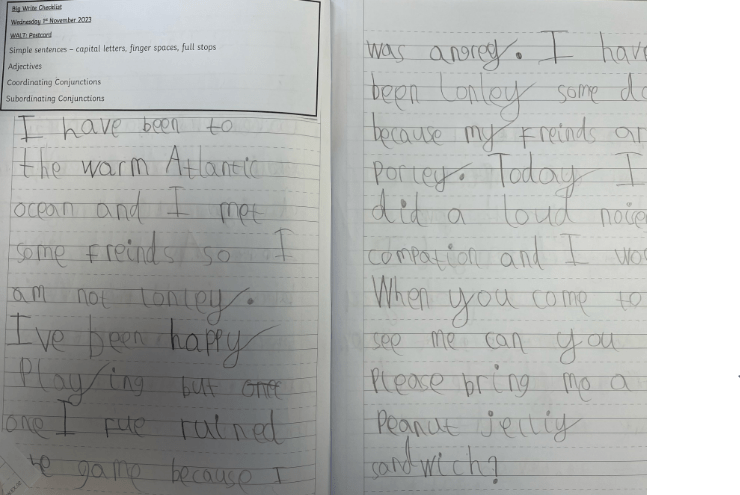 Big Write Checklist
Wednesday 1st November 2023
WALT: Postcard
Simple sentences – capital letters, finger spaces, full stops
Adjectives
Coordinating Conjunctions
Subordinating Conjunctions
I have been to
the warm Atlantic
ocean and I met
some freinds so I
am not lonley.
I've been happy
Playing but
one I rue ruined
game because I
was angrey. I have
been lonley some
because my freinds
porley. Today I
did a loud noise
compation and I
When you come to
see me can you
Please bring me a
Peanut jelliy
sandwich?